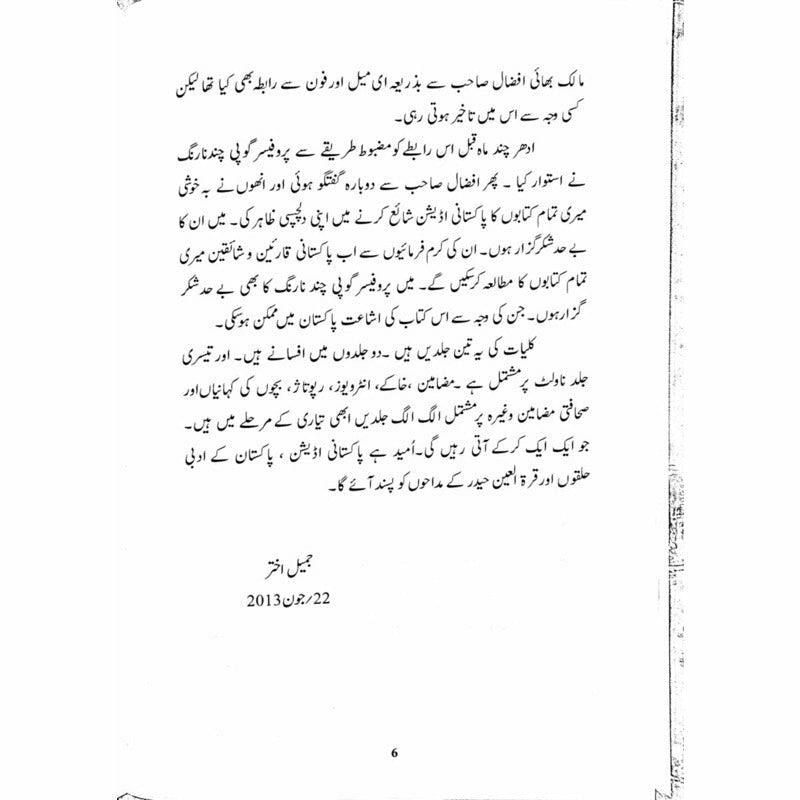 مالک بھائی افضال صاحب سے بذریعہ ای میل اور فون سے رابطہ بھی کیا تھا لیکن
کسی وجہ سے اس میں تاخیر ہوتی رہی۔
ادھر چند ماہ قبل اس رابطے کو مضبوط طریقے سے پروفیسر گوپی چند نارنگ
نے استوار کیا ۔ پھر افضال صاحب سے دوبارہ گفتگو ہوئی اور انھوں نے بہ خوشی
میری تمام کتابوں کا پاکستانی اڈیشن شائع کرنے میں اپنی دلچسپی ظاہر کی۔ میں ان کا
بے حد شکر گزار ہوں۔ ان کی کرم فرمائیوں سے اب پاکستانی قارئین و شائقین میری
تمام کتابوں کا مطالعہ کرسکیں گے۔ میں پروفیسر گوپی چند نارنگ کا بھی بے حد شکر
گزار ہوں۔ جن کی وجہ سے اس کتاب کی اشاعت پاکستان میں ممکن ہوسکی۔
کلیات کی یہ تین جلدیں ہیں ۔دو جلدوں میں افسانے ہیں۔ اور تیسری
جلد ناولٹ پر مشتمل ہے ۔مضامین ،خاکے، انٹرویوز، رپوتاژ، بچوں کی کہانیاں اور
صحافتی مضامین وغیرہ پر مشتمل الگ الگ جلدیں ابھی تیاری کے مرحلے میں ہیں۔
جو ایک ایک کرکے آتی رہیں گی۔اُمید ہے پاکستانی اڈیشن ، پاکستان کے ادبی
حلقوں اور قرۃ العین حیدر کے مداحوں کو پسند آئے گا۔
جمیل اختر
22/جون 2013
6